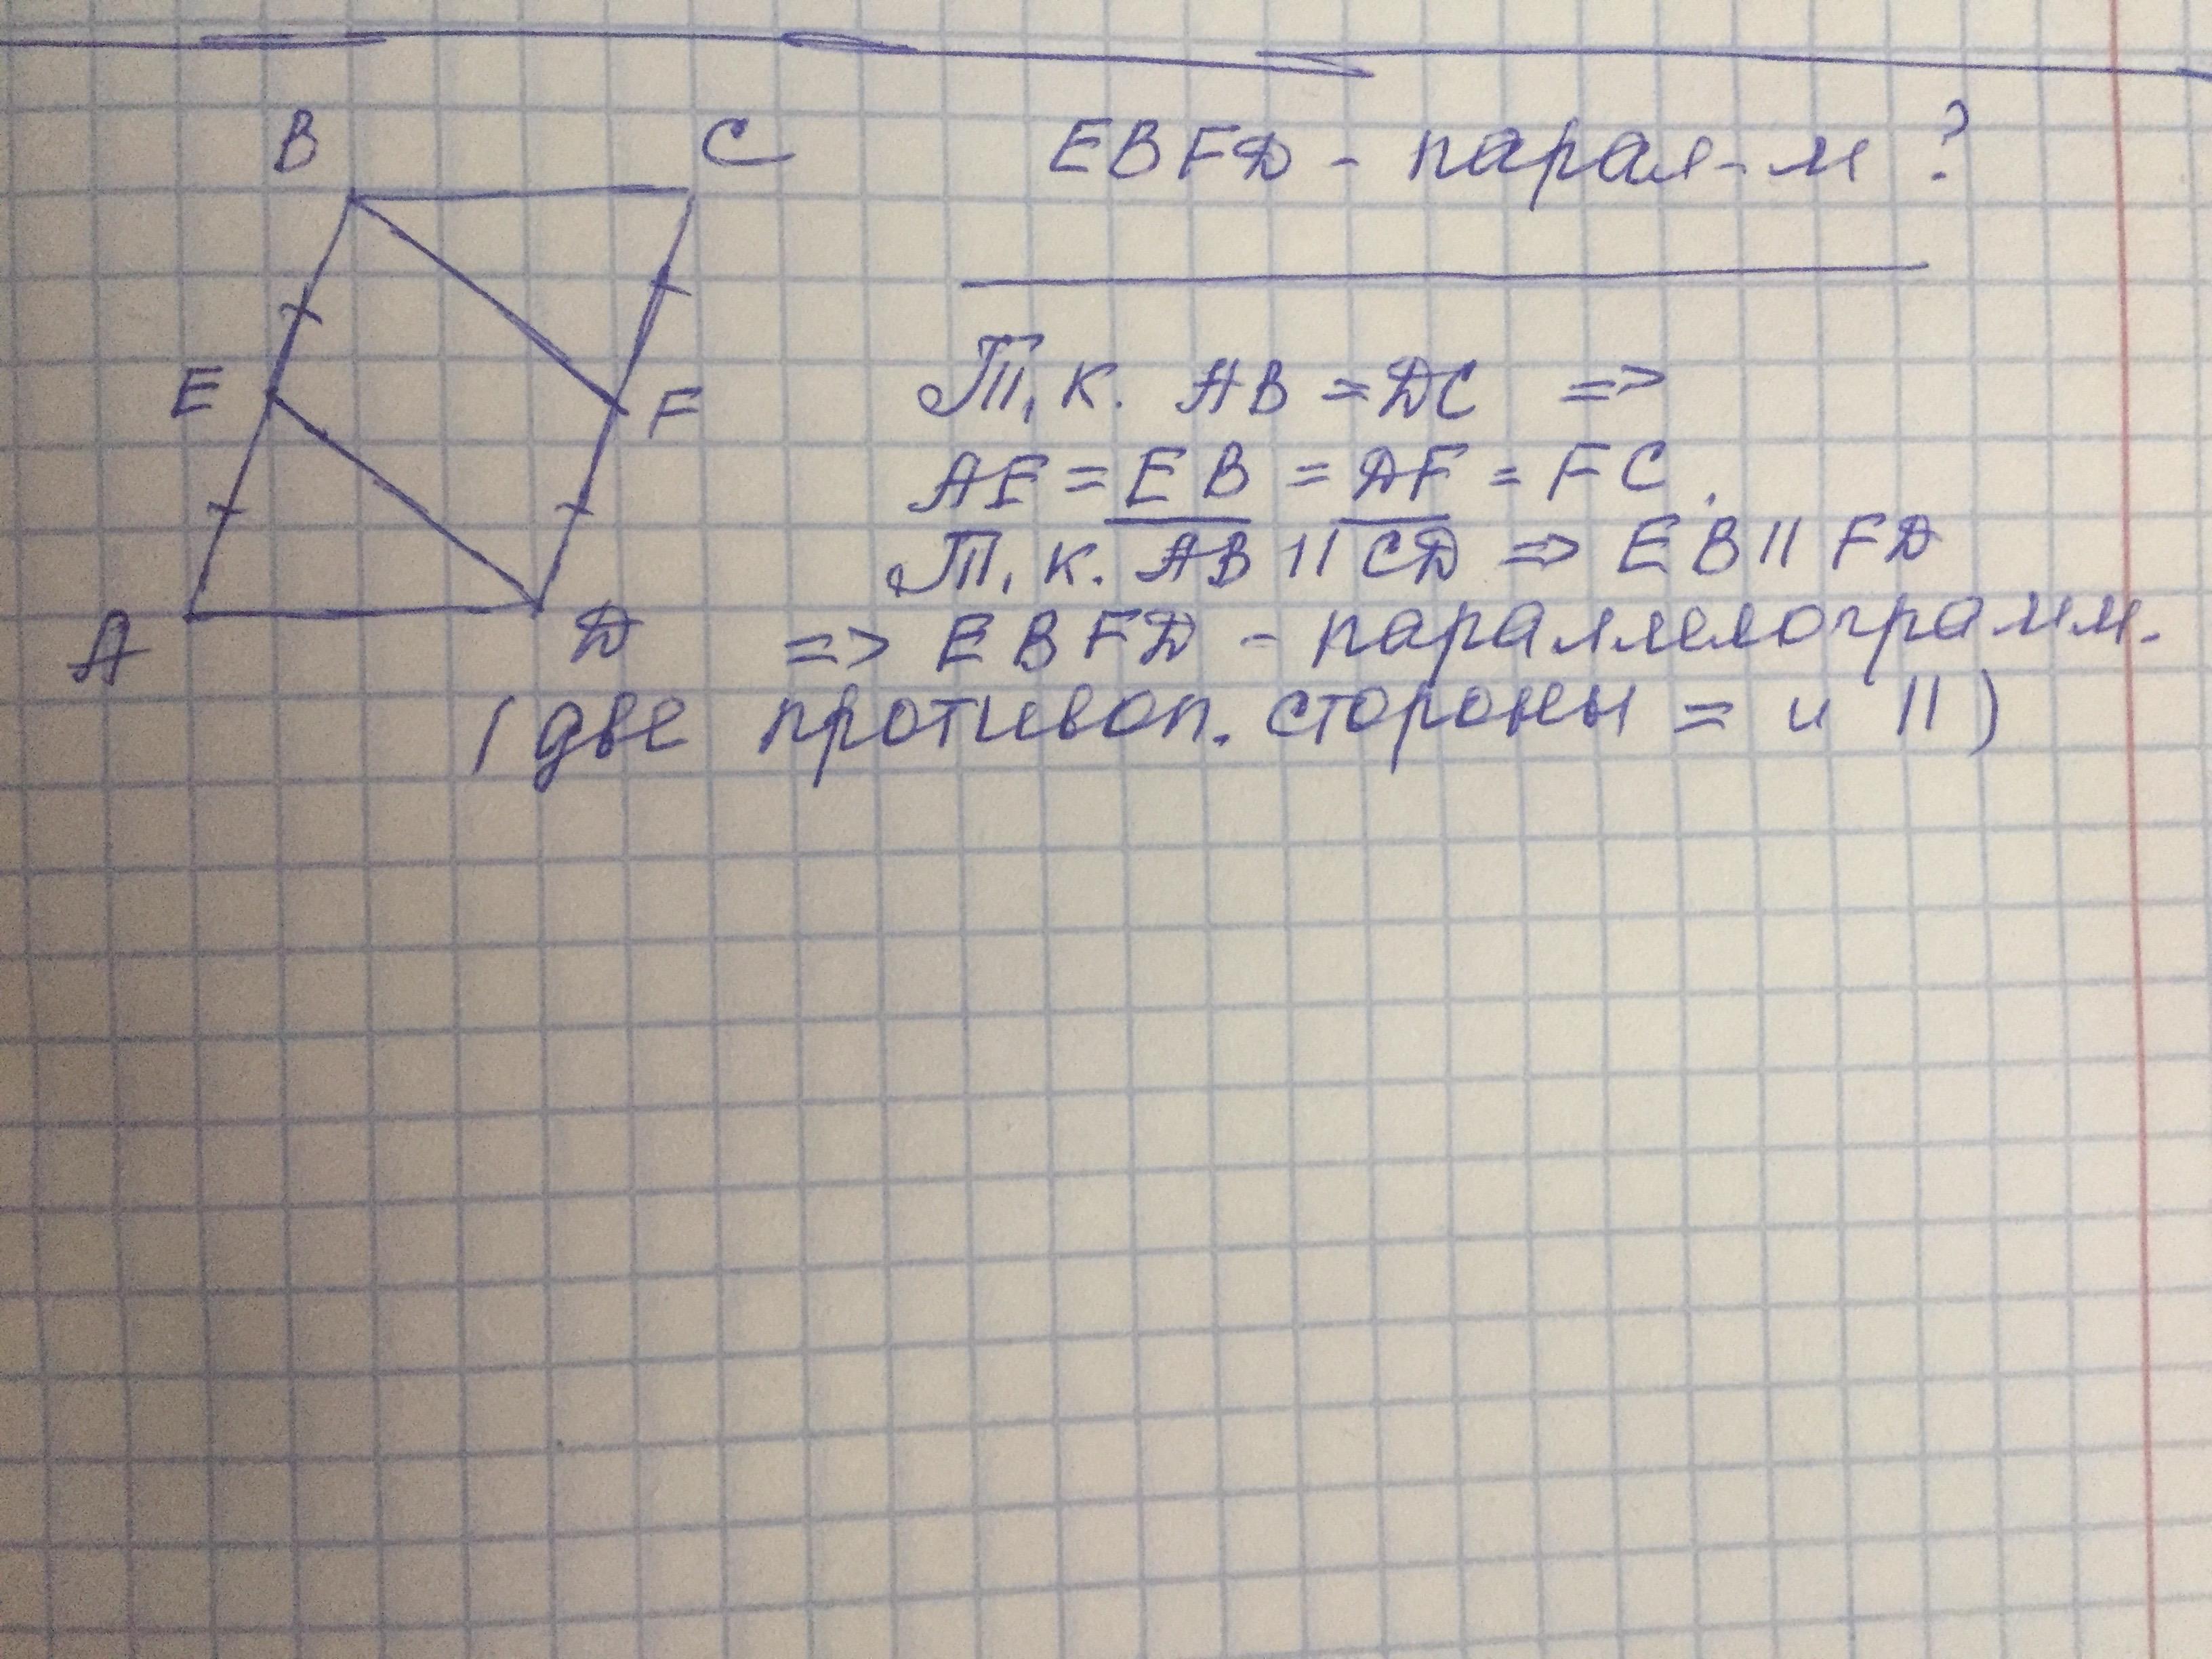 B C
EBFD - парал-м ?
E F
A D
Т.к. AB = DC =>
AE = EB = DF = FC.
Т.к. AB || CD => EB || FD
=> EBFD - параллелограмм.
(две противоп. стороны = и ||)